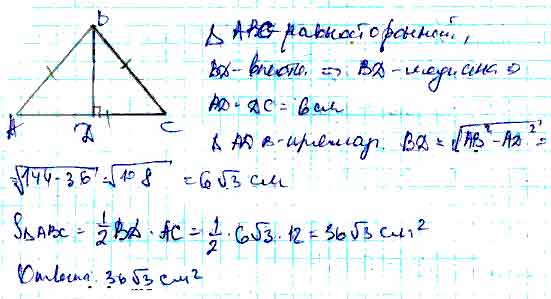 B
A D C
Δ ABC - равносторонний,
BD - высота ⇒ BD - медиана ⇒
AD = DC = 6 см
Δ ADB - прямоуг. BD = √(AB² - AD²) =
= √(144 - 36) = √108 = 6√3 см
SΔABC = 1/2 BD · AC = 1/2 · 6√3 · 12 = 36√3 см²
Ответ: 36√3 см²